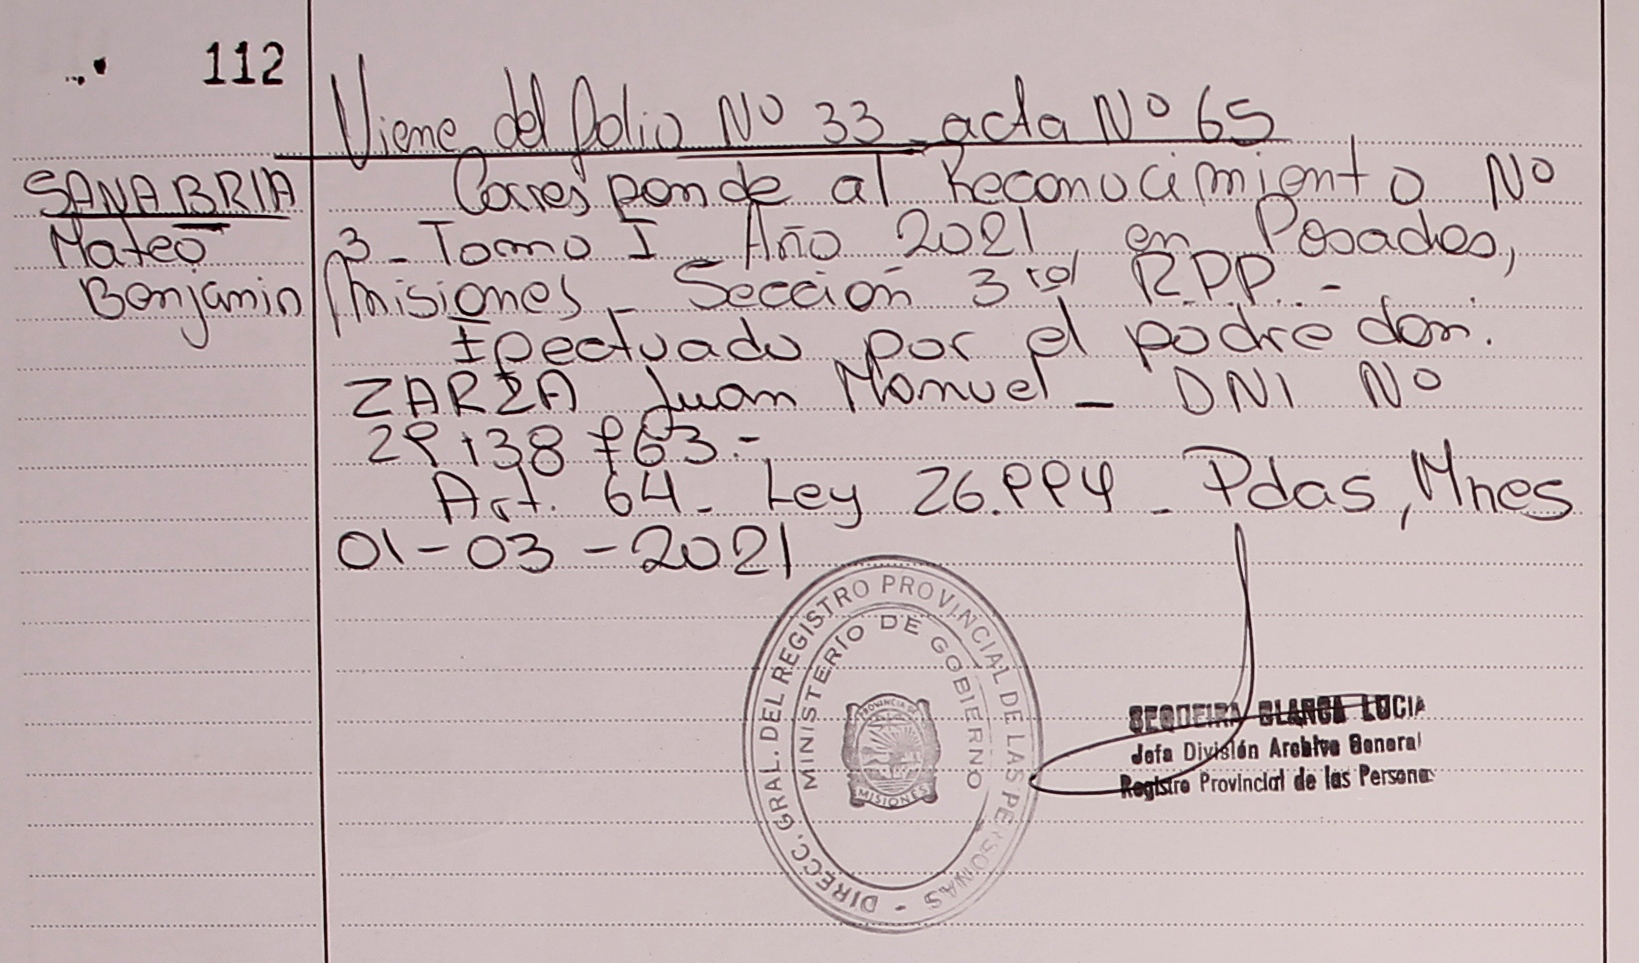 112
Viene del folio Nº 33 - acta Nº 65
SANABRIA
Mateo
Benjamin
Corresponde al Reconocimiento Nº
3 - Tomo I - Año 2021 en Posadas,
Misiones - Sección 3ra R.P.P. -
Efectuado por el padre don.
ZARZA Juan Manuel - DNI Nº
29.138.763.-
Art. 64 - Ley 26.994 - Pdas, Mnes
01-03-2021
DIRECC. GRAL. DEL REGISTRO PROVINCIAL DE LAS PERSONAS -
MINISTERIO DE GOBIERNO
PROVINCIA DE
MISIONES
SEQUEIRA BLANCA LUCIA
Jefa División Archivo General
Registro Provincial de las Personas